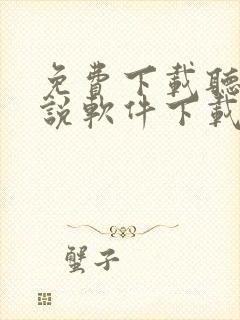 免費下載聽
說軟件下載
蟹子